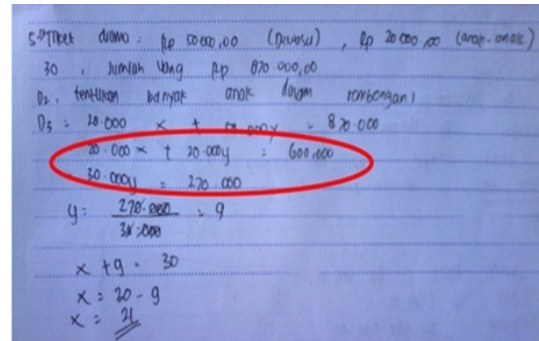 5. Tiket drama : Rp 50.000,00 (Dewasa) , Rp 20 000,00 (anak-anak)
30 , Jumlah Uang Rp 870.000,00
D2 . tentukan banyak anak dalam rombongan!
D3 = 20.000 x + 50.000y = 870.000
20.000 x + 20.000y = 600.000
30.000y = 270.000
y = 270.000 = 9
30.000
x + 9 = 30
x = 20 - 9
x = 21